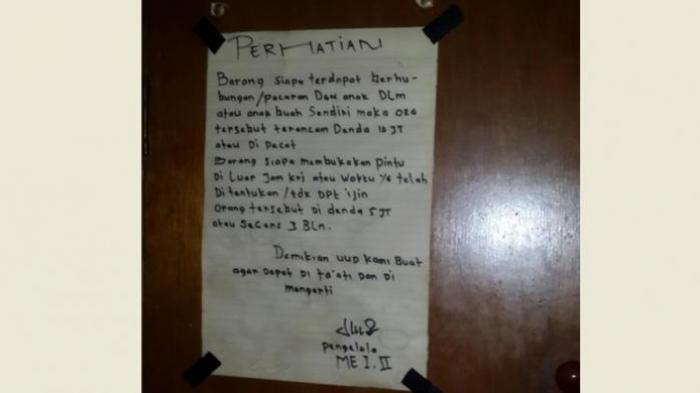 PERHATIAN
Barang siapa terdapat berhu-
bungan/pacaran DGN anak DLm
atau anak buah Sendiri maka ORG
tersebut terancam Denda 10 JT
atau Di pacat
Barang siapa membukakan pintu
Di Luar Jam krj atau waktu yg telah
Di tentukan /tdk DPt ijin
orang tersebut Di denda 5 JT
atau SeCors 3 BLn.
Demikian UUD Kami Buat
agar Dapat Di ta'ati Dan Di
mengerti
pengelola
ME I. II